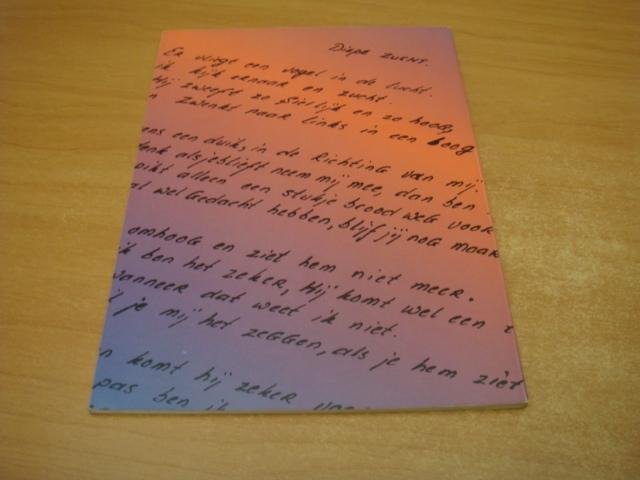 Diepe zucht.
Er vliegt een vogel in de lucht.
ik kijk ernaar en zucht.
Hij zweeft zo sierlijk en zo hoog,
n zwenkt naar links in een boog
ens een duik, in de richting van mij
denk alsjeblieft neem mij mee, dan ben
pikt alleen een stukje brood weg voor
al wel gedacht hebben, blijf jij nog maar
omhoog en ziet hem niet meer.
ik ben het zeker, Hij komt wel een
wanneer dat weet ik niet.
je mij het zeggen, als je hem ziet
n komt hij zeker
pas ben ik